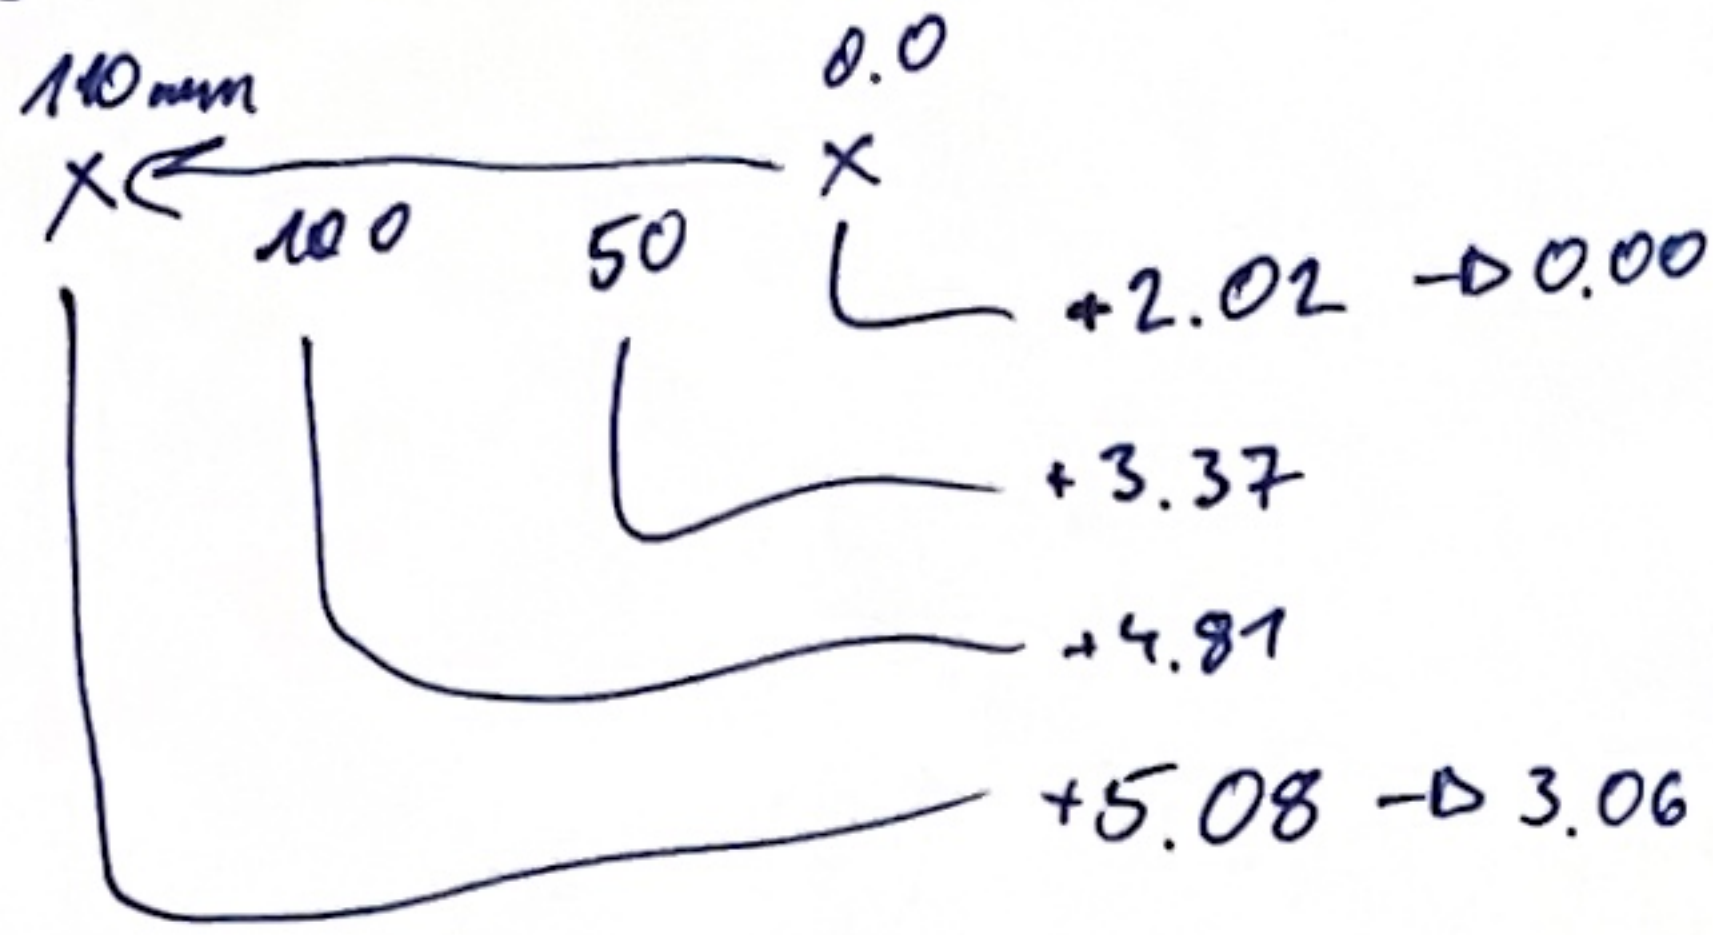 0.0
110mm
X X
100 50
+2.02 → 0.00
+3.37
+4.81
+5.08 → 3.06